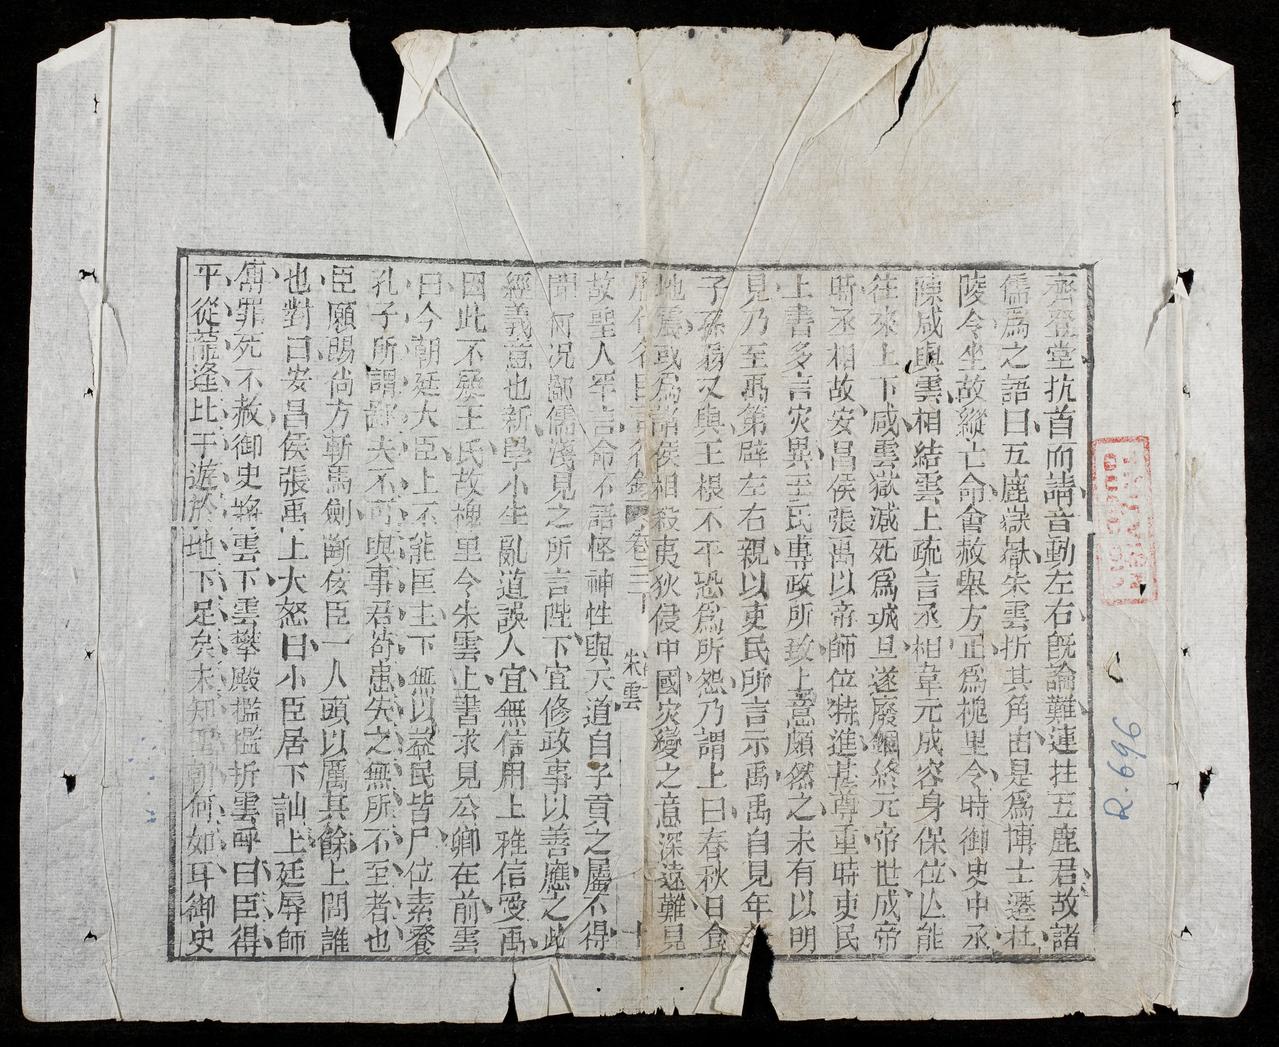 齊登堂抗首而請音動左右旣論難連拄五鹿君故諸
儒爲之語曰五鹿嶽嶽朱雲折其角由是爲博士遷杜
陵令坐故縱亡命會赦舉方正爲槐里令時御史中丞
陳咸與雲相結雲上疏言丞相韋元成容身保位亾能
往來上下咸雲獄減死爲城旦遂廢錮終元帝世成帝
時丞相故安昌侯張禹以帝師位特進甚尊重時吏民
上書多言灾異王氏專政所致上意頗然之未有以明
見乃至禹第辟左右親以吏民所言示禹禹自見年
子孫弱又與王根不平恐爲所怨乃謂上曰春秋日食
地震或爲諸侯相殺夷狄侵中國灾變之意深遠難見
歷代名臣言行錄 卷三下 朱雲
故聖人罕言命不語怪神性與天道自子貢之屬不得
聞何况鄙儒淺見之所言陛下宜修政事以善應之此
經義意也新學小生亂道誤人宜無信用上雅信愛禹
因此不疑王氏故槐里令朱雲上書求見公卿在前雲
曰今朝廷大臣上不能匡主下無以益民皆尸位素餐
孔子所謂鄙夫不可與事君苟患失之無所不至者也
臣願賜尚方斬馬劍斷佞臣一人頭以厲其餘上問誰
也對曰安昌侯張禹上大怒曰小臣居下訕上廷辱師
傅罪死不赦御史將雲下雲攀殿檻檻折雲呼曰臣得
平從龍逢比干遊於地下足矣未知聖朝何如耳御史
R-696